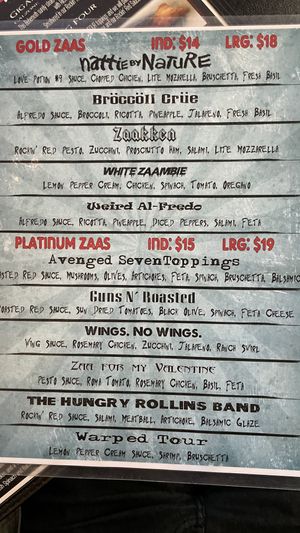 GIGA
FOUR
GOLD ZAAS IND: $14 LRG: $18
NATTIE BY NATURE
LOVE POTION #9 SAUCE, CHOPPED CHICKEN, LITE MOZARELLA, BRUSCHETTA, FRESH BASIL
Bröccöli Crüe
ALFREDO SAUCE, BROCCOLI, RICOTTA, PINEAPPLE, JALAPENO, FRESH BASIL
Zaakken
ROCKIN' RED PESTO, ZUCCHINI, PROSCIUTTO HAM, SALAMI, LITE MOZZARELLA
WHITE ZAAMBIE
LEMON PEPPER CREAM, CHICKEN, SPINACH, TOMATO, OREGANO
Weird Al-Fredo
ALFREDO SAUCE, RICOTTA, PINEAPPLE, DICED PEPPERS, SALAMI, FETA
PLATINUM ZAAS IND: $15 LRG: $19
Avenged SevenToppings
OASTED RED SAUCE, MUSHROOMS, OLIVES, ARTICHOKES, FETA, SPINACH, BRUSCHETTA, BALSAMIC
Guns N' Roasted
ROASTED RED SAUCE, SUN DRIED TOMATOES, BLACK OLIVE, SPINACH, FETA CHEESE
WINGS. NO WINGS.
WING SAUCE, ROSEMARY CHICKEN, ZUCCHINI, JALAPENO, RANCH SWIRL
ZAA FOR MY VALENTINE
PESTO SAUCE, ROMA TOMATO, ROSEMARY CHICKEN, BASIL, FETA
THE HUNGRY ROLLINS BAND
ROCKIN' RED SAUCE, SALAMI, MEATBALL, ARTICHOKE, BALSAMIC GLAZE
Warped Tour
LEMON PEPPER CREAM SAUCE, SHRIMP, BRUSCHETTA